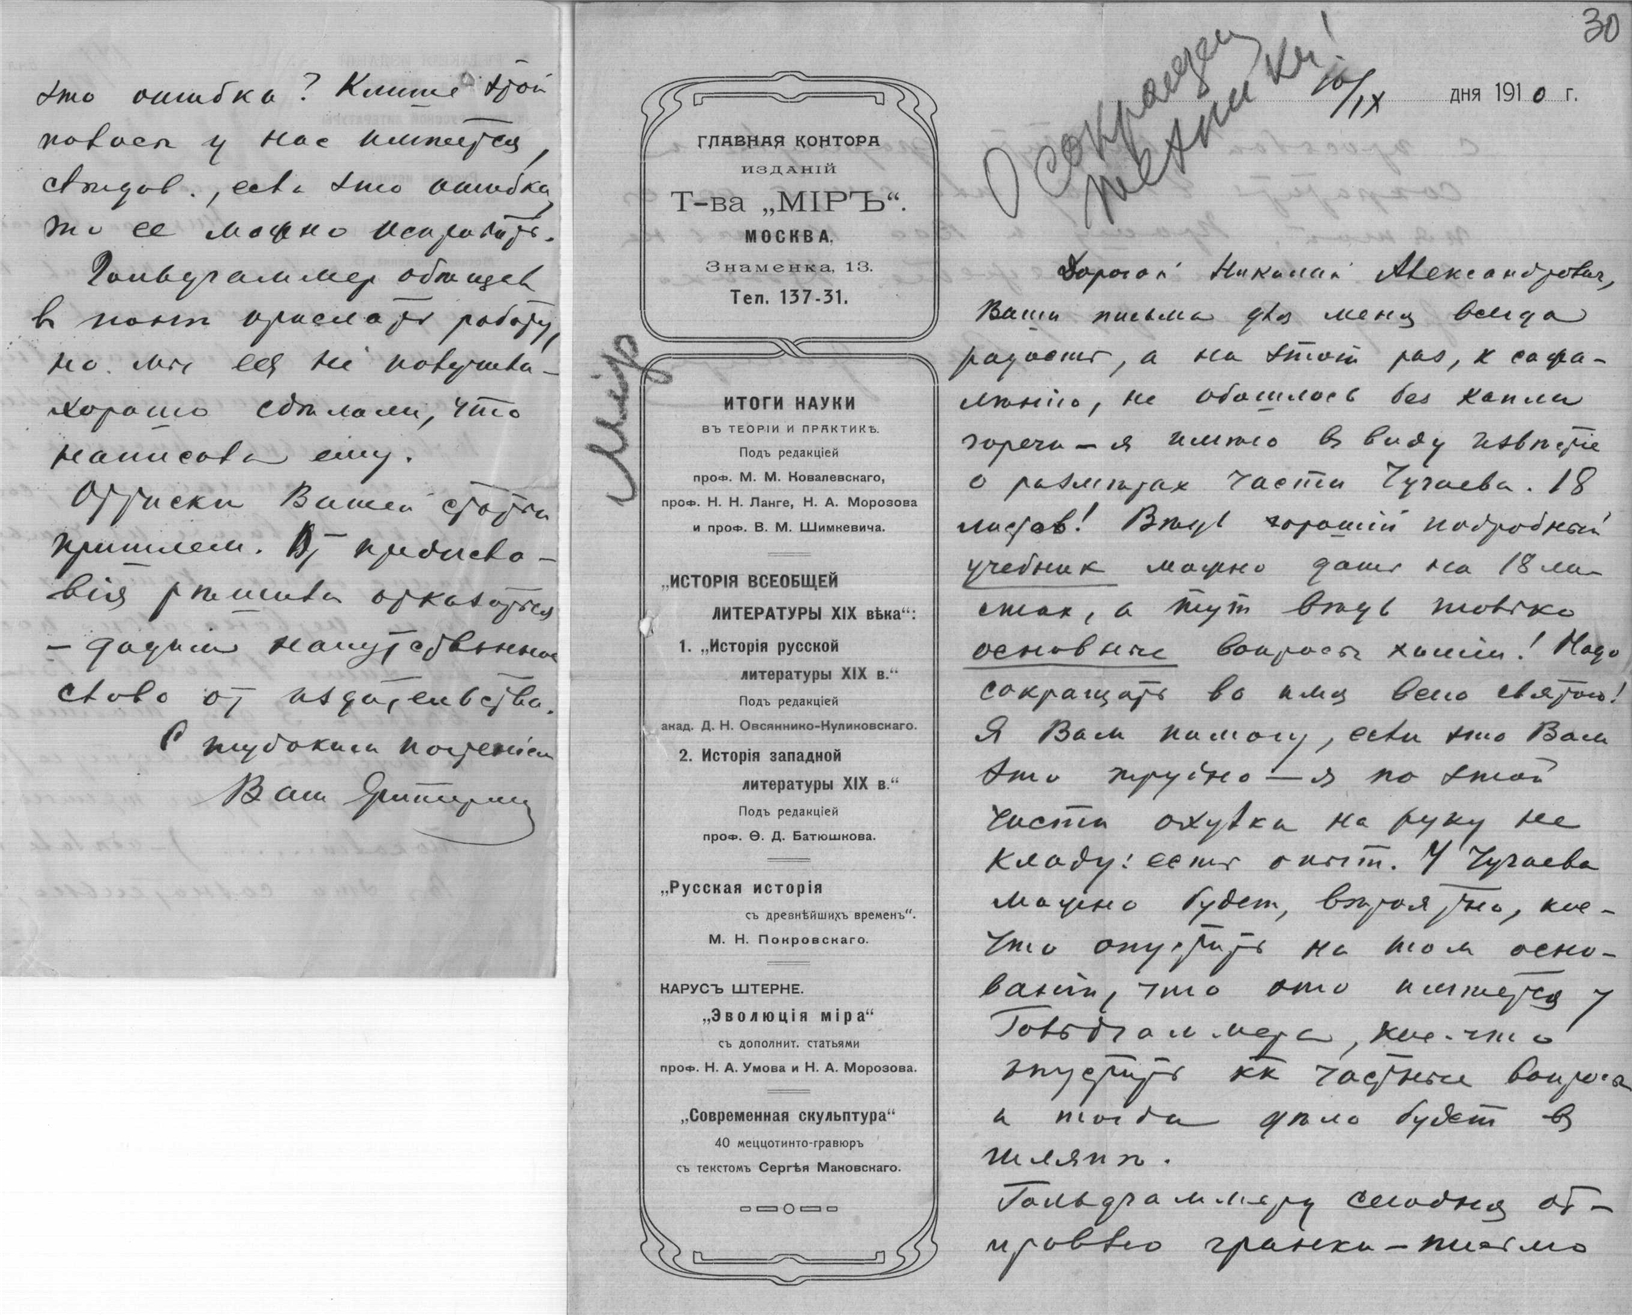 30
О сокращен
механики!
10/IX дня 1910 г.
Мир
ГЛАВНАЯ КОНТОРА
ИЗДАНІЙ
Т-ва „МІРЪ“.
МОСКВА,
Знаменка, 13.
Тел. 137-31.
ИТОГИ НАУКИ
ВЪ ТЕОРІИ И ПРАКТИКѢ.
Подъ редакціей
проф. М. М. Ковалевскаго,
проф. Н. Н. Ланге, Н. А. Морозова
и проф. В. М. Шимкевича.
„ИСТОРІЯ ВСЕОБЩЕЙ
ЛИТЕРАТУРЫ XIX вѣка“:
1. „Исторія русской
литературы XIX в.“
Подъ редакціей
акад. Д. Н. Овсянико-Куликовскаго.
2. Исторія западной
литературы XIX в.“
Подъ редакціей
проф. Ѳ. Д. Батюшкова.
„Русская исторія
съ древнѣйшихъ временъ“.
М. Н. Покровскаго.
КАРУСЪ ШТЕРНЕ.
„Эволюція міра“
съ дополнит. статьями
проф. Н. А. Умова и Н. А. Морозова.
„Современная скульптура“
40 меццотинто-гравюръ
съ текстомъ Сергѣя Маковскаго.
Дорогой Николай Александрович,
Ваши письма для меня всегда
радость, а на этот раз, к сожа-
лѣнію, не обошлось без капли
горечи – я имѣю в виду извѣстіе
о размѣрах части Чугаева. 18
листов! Вѣдь хорошій подробный
учебник можно дать на 18 ли-
стах, а тут вѣдь только
основные вопросы химіи! Надо
сокращать во имя всего святого!
Я Вам помогу, если это Вам
это трудно – я по этой
части охулки на руку не
кладу: есть опыт. У Чугаева
можно будет, вѣроятно, кое-
что опустить на том осно-
ваніи, что это имѣется у
Гольдгаммера, кое-что
опустить кк частные вопросы
и тогда дѣло будет в
шляпѣ.
Гольдгаммеру сегодня от-
правлю гранки – письмо
это ошибка? Клише этой
у нас имѣется,
слѣдов., если это ошибка,
то ее можно исправить.
Гольдгаммер обѣщает
в прислать работу,
но мы ея не получили –
хорошо сдѣлали, что
написали ему.
Оттиски Вашей статьи
пришлем. От предисло-
вія рѣшили отказаться
– дадим напутственное
слово от издательства.
С глубоким почтеніем
Ваш